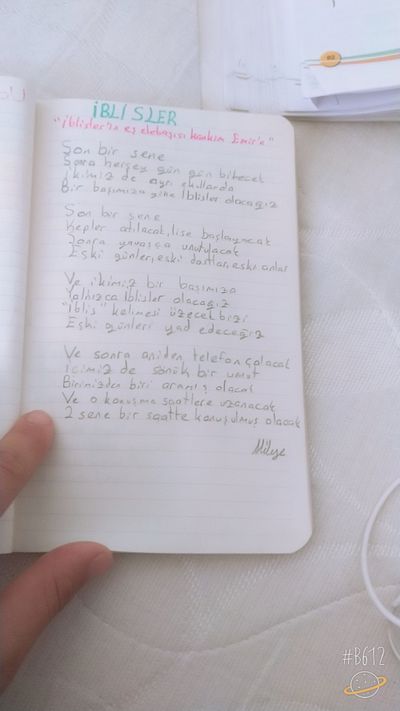 İBLİSLER
"İblisler'in eş elebaşısı kankim Emir'e"
Son bir sene
Sonra herşey gün gün bitecek
İkimiz de ayrı okullarda
Bir başımıza yine İblisler olacağız
Son bir sene
Kepler atılacak, lise başlayacak
Sonra yavaşça unutulacak
Eski günler, eski dostlar, eski anlar
Ve ikimiz bir başımıza
Yalnızca İblisler olacağız
"İblis" kelimesi üzecek bizi
Eski günleri yad edeceğiz
Ve sonra aniden telefon çalacak
İçimiz de sönük bir umut
Birimizden biri aramış olacak
Ve o konuşma saatlere uzanacak
2 sene bir saatte konuşulmuş olacak
#B612